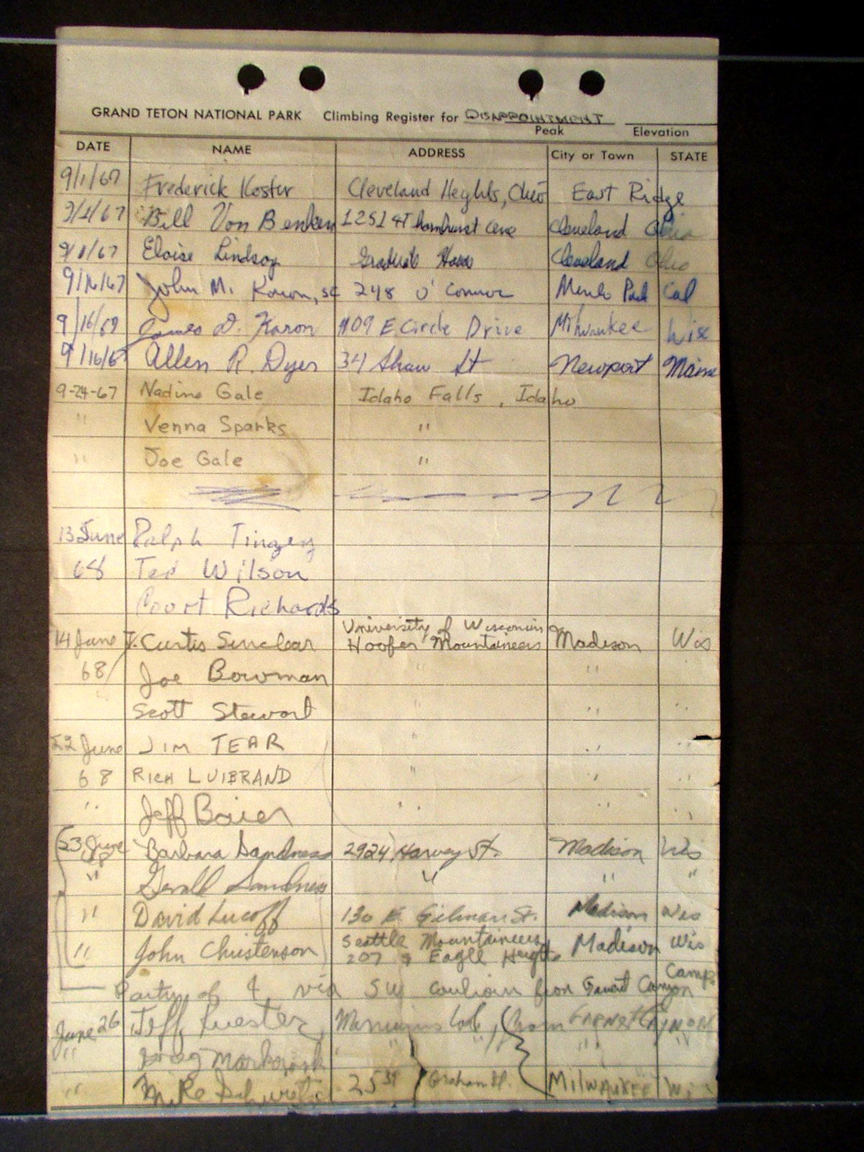 GRAND TETON NATIONAL PARK Climbing Register for DISAPPOINTMENT
Peak Elevation
DATE NAME ADDRESS City or Town STATE
9/1/67 Frederick Koster Cleveland Heights, Ohio East Ridge
Bill Von Benken 1251 Cleveland Ohio
Eloise Lindsay Graduate House Cleveland Ohio
9/16/67 John M. 248 O'Connor Menlo Park Cal
9/16/69 James D. Karon 409 E Circle Drive Milwaukee Wisc
9/16/6 Allen R. Dyer 34 Shaw St Newport Maine
9-24-67 Nadine Gale Idaho Falls, Idaho
" Venna Sparks "
" Joe Gale "
13 June Ralph Tingey
68 Ted Wilson
Court Richards
University of Wisconsin
14 June J. Curtis Sinclear Hoofer Mountaineers Madison Wis
68 Joe Bowman "
Scott Stewart " "
22 June JIM TEAR " "
68 RICH LUIBRAND " "
" Jeff " " "
23 June Barbara Sandness 2924 Harvey St. Madison Wis
" Gerald Sandness " " "
" David Lucoff 130 E. Gilman St. Madison Wis
" John Christenson Seattle Mountaineers Madison Wis
207 Eagle Heights
Party of 4 via SW couloir from Garnet Canyon Camp
June 26 Jeff from CANYON
" Greg " " "
" Mike 25 Graham MILWAUKEE Wi